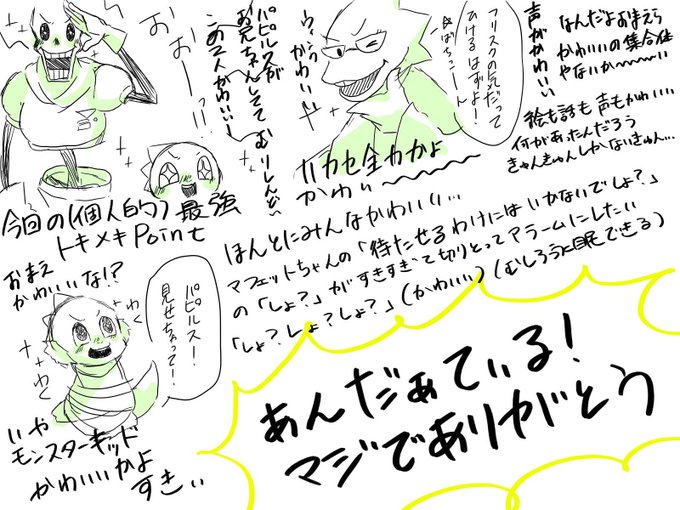 なんだよおまえら
かわいいの集合体
やないか〜〜〜い
声がかわいい
絵も話も声もかわいい
何があったんだろう
きゅんきゅんしかないきゅん…
フリスクの気だって
ひけるはずよ!
ばちこーん
ウィンク
かわいい
ハカセ全力かよ
かわい〜〜〜
パピルスが
お兄ちゃんしてて むりしんどい
この2人かわいい…
おおーっ!!
今回の(個人的)最強
トキメキPoint
ほんとにみんなかわいい…
マフェットちゃんの「待たせるわけにはいかないでしょ?」
の「しょ?」がすきすぎて切りとってアラームにしたい
「しょ?しょ?しょ?」(かわいい)(むしろ永眠できる)
おまえ
かわいいな!?
パピルス!
見せちゃって!
わく
わく
いや
モンスターキッド
かわいいかよ
すきぃ
あんだぁている!
マジでありがとう